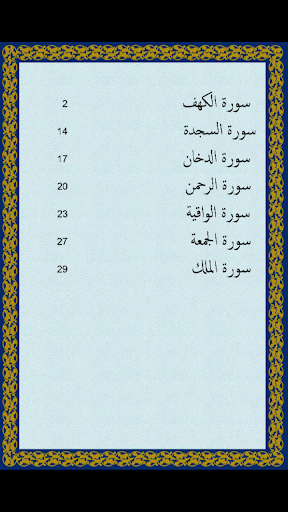 سورة الكهف 2
سورة السجدة 14
سورة الدخان 17
سورة الرحمن 20
سورة الواقية 23
سورة الجمعة 27
سورة الملك 29